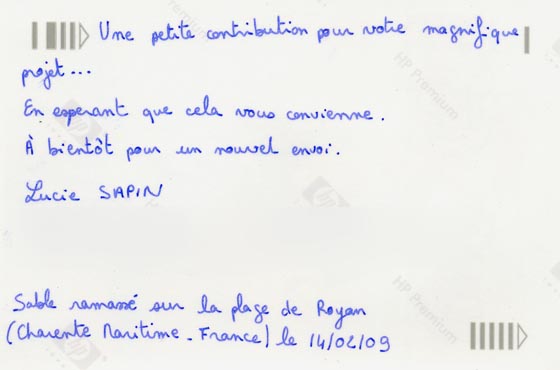 Une petite contribution pour votre magnifique
projet...
En esperant que cela vous convienne.
À bientôt pour un nouvel envoi.
Lucie SAPIN
Sable ramassé sur la plage de Royan
(Charente Maritime - France) le 14/02/09
HP Premium
HP Premium
hp